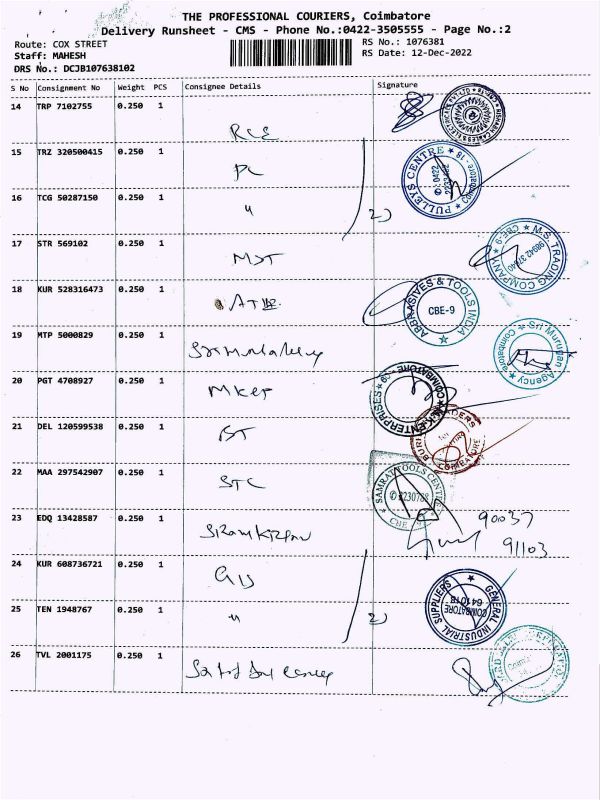 THE PROFESSIONAL COURIERS, Coimbatore
Delivery Runsheet - CMS - Phone No.:0422-3505555 - Page No.:2
Route: COX STREET
RS No.: 1076381
Staff: MAHESH
RS Date: 12-Dec-2022
DRS No.: DCJB107638102
S No Consignment No Weight PCS Consignee Details Signature
14 TRP 7102755 0.250 1
RCE
15 TRZ 320500415 0.250 1
PC
PULLEYS CENTRE
Coimbatore - 18
16 TCG 50287150 0.250 1
" 2)
17 STR 569102 0.250 1
MST
M.S. TRADING COMPANY
CBE-9
98942 37440
18 KUR 528316473 0.250 1
ABBRASIVES & TOOLS INDIA
CBE-9
19 MTP 5000829 0.250 1
Sri Murugan Agency
Coimbatore
20 PGT 4708927 0.250 1
MKEP
M.K ENTERPRISES
COIMBATORE
21 DEL 120599538 0.250 1
BT
COIMBATORE
22 MAA 297542907 0.250 1
STC
SAMRAT TOOLS CENTRE
2230788
CBE
23 EDQ 13428587 0.250 1
90037
91103
24 KUR 608736721 0.250 1
GIS
GENERAL INDUSTRIAL SUPPLIERS
COIMBATORE
641018
25 TEN 1948767 0.250 1
" 2)
26 TVL 2001175 0.250 1